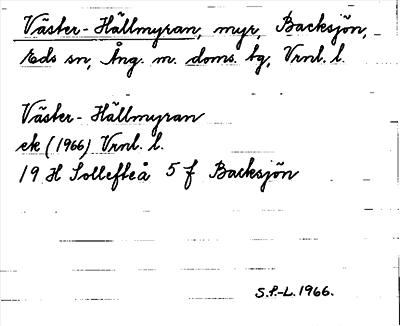 Väster-Hällmyran, myr, Backsjön,
Eds sn, Ång. m. doms. bg, Vrnl. l.
Väster-Hällmyran
ek (1966) Vrnl. l.
19 H Sollefteå 5 f Backsjön
S.P.-L. 1966.